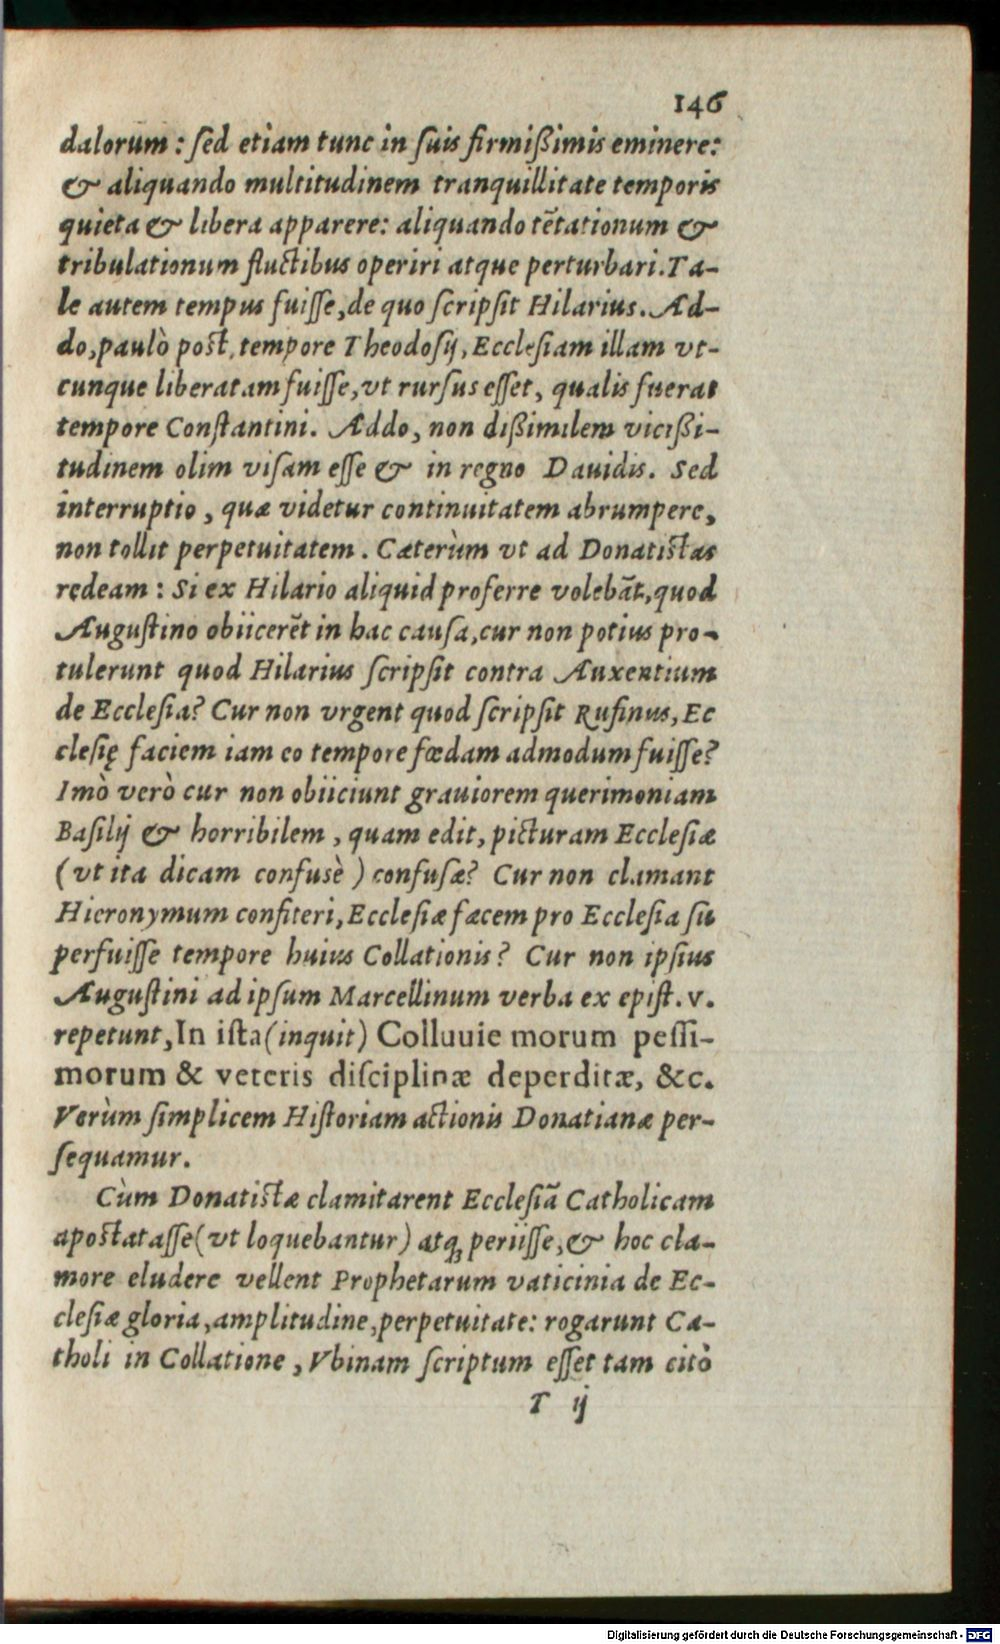 146
dalorum : ſed etiam tunc in ſuis firmißimis eminere:
& aliquando multitudinem tranquillitate temporis
quieta & libera apparere: aliquando tẽtationum &
tribulationum fluctibus operiri atque perturbari. Ta-
le autem tempus fuiſſe, de quo ſcripſit Hilarius. Ad-
do, paulò post, tempore Theodoſij, Eccleſiam illam vt-
cunque liberatam fuiſſe, vt rurſus eſſet, qualis fuerat
tempore Conſtantini. Addo, non dißimilem vicißi-
tudinem olim viſam eſſe & in regno Dauidis. Sed
interruptio, quæ videtur continuitatem abrumpere,
non tollit perpetuitatem. Cæterùm vt ad Donatistas
redeam : Si ex Hilario aliquid proferre volebãt, quod
Auguſtino obiicerẽt in hac cauſa, cur non potius pro-
tulerunt quod Hilarius ſcripſit contra Auxentium
de Eccleſia? Cur non vrgent quod ſcripſit Rufinus, Ec
cleſię faciem iam eo tempore fœdam admodum fuiſſe?
Imò verò cur non obiiciunt grauiorem querimoniam
Baſilij & horribilem, quam edit, picturam Eccleſiæ
(vt ita dicam confusè) confuſæ? Cur non clamant
Hieronymum confiteri, Eccleſiæ fæcem pro Eccleſia ſu
perfuiſſe tempore huius Collationis? Cur non ipſius
Auguſtini ad ipſum Marcellinum verba ex epiſt. v.
repetunt, In iſta (inquit) Colluuie morum peſſi-
morum & veteris diſciplinæ deperditæ, &c.
Verùm ſimplicem Hiſtoriam actionis Donatianæ per-
ſequamur.
Cùm Donatistæ clamitarent Eccleſiã Catholicam
apostataſſe (vt loquebantur) atq; periiſſe, & hoc cla-
more eludere vellent Prophetarum vaticinia de Ec-
cleſiæ gloria, amplitudine, perpetuitate: rogarunt Ca-
tholi in Collatione, Vbinam ſcriptum eſſet tam citò
T ij
Digitalisierung gefördert durch die Deutsche Forschungsgemeinschaft - DFG